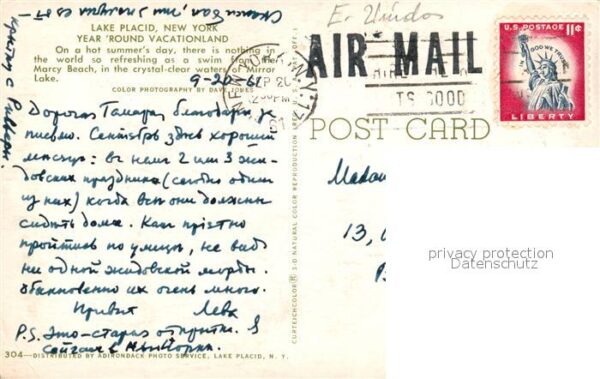 LAKE PLACID, NEW YORK
YEAR 'ROUND VACATIONLAND
On a hot summer's day, there is nothing in
the world so refreshing as a swim from
Marcy Beach, in the crystal-clear waters of Mirror
Lake.
COLOR PHOTOGRAPHY BY DAVE JONES
9-20-61
Дорогая Тамара, благодарю за
письмо. Сентябрь здесь хороший
месяц: в нем 2 или 3 жи-
довских праздника (сегодня один
из них) когда все они должны
сидеть дома. Как приятно
пройтись по улицы, не видя
ни одной жидовской морды.
обыкновенно их очень много.
Привет Лева
P.S. Это старая открытка. Я
сейчас в
304—DISTRIBUTED BY ADIRONDACK PHOTO SERVICE, LAKE PLACID, N. Y.
CURTEICHCOLOR® 3-D NATURAL COLOR REPRODUCTION
AIR MAIL
POST CARD
U.S. POSTAGE 11¢
IN GOD WE TRUST
LIBERTY
SEP 20
PM
13,
privacy protection
Datenschutz